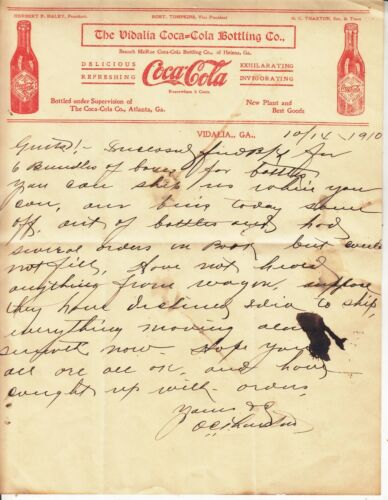 HERBERT P. HALEY, President.
ROBT. TOMPKINS, Vice President
G. C. THAXTON, Sec. & Treas
The Vidalia Coca-Cola Bottling Co.,
Branch McRae Coca-Cola Bottling Co., of Helena, Ga.
DELICIOUS
REFRESHING
Coca-Cola
Everywhere 5 Cents
EXHILARATING
INVIGORATING
Bottled under Supervision of
The Coca-Cola Co., Atlanta, Ga.
New Plant and
Best Goods
VIDALIA,, GA., 10/14 1910
Gents!- find for
6 Bundles of boxes for bottles
you can ship us when you
can, our bus today some
off, out of bottles and had
several orders in Book but could
not fill, Have not heard
anything from wagon, suppose
they have to ship,
everything moving along
smooth now. Hope you
all are all ok, and have
caught up with orders,
Yours